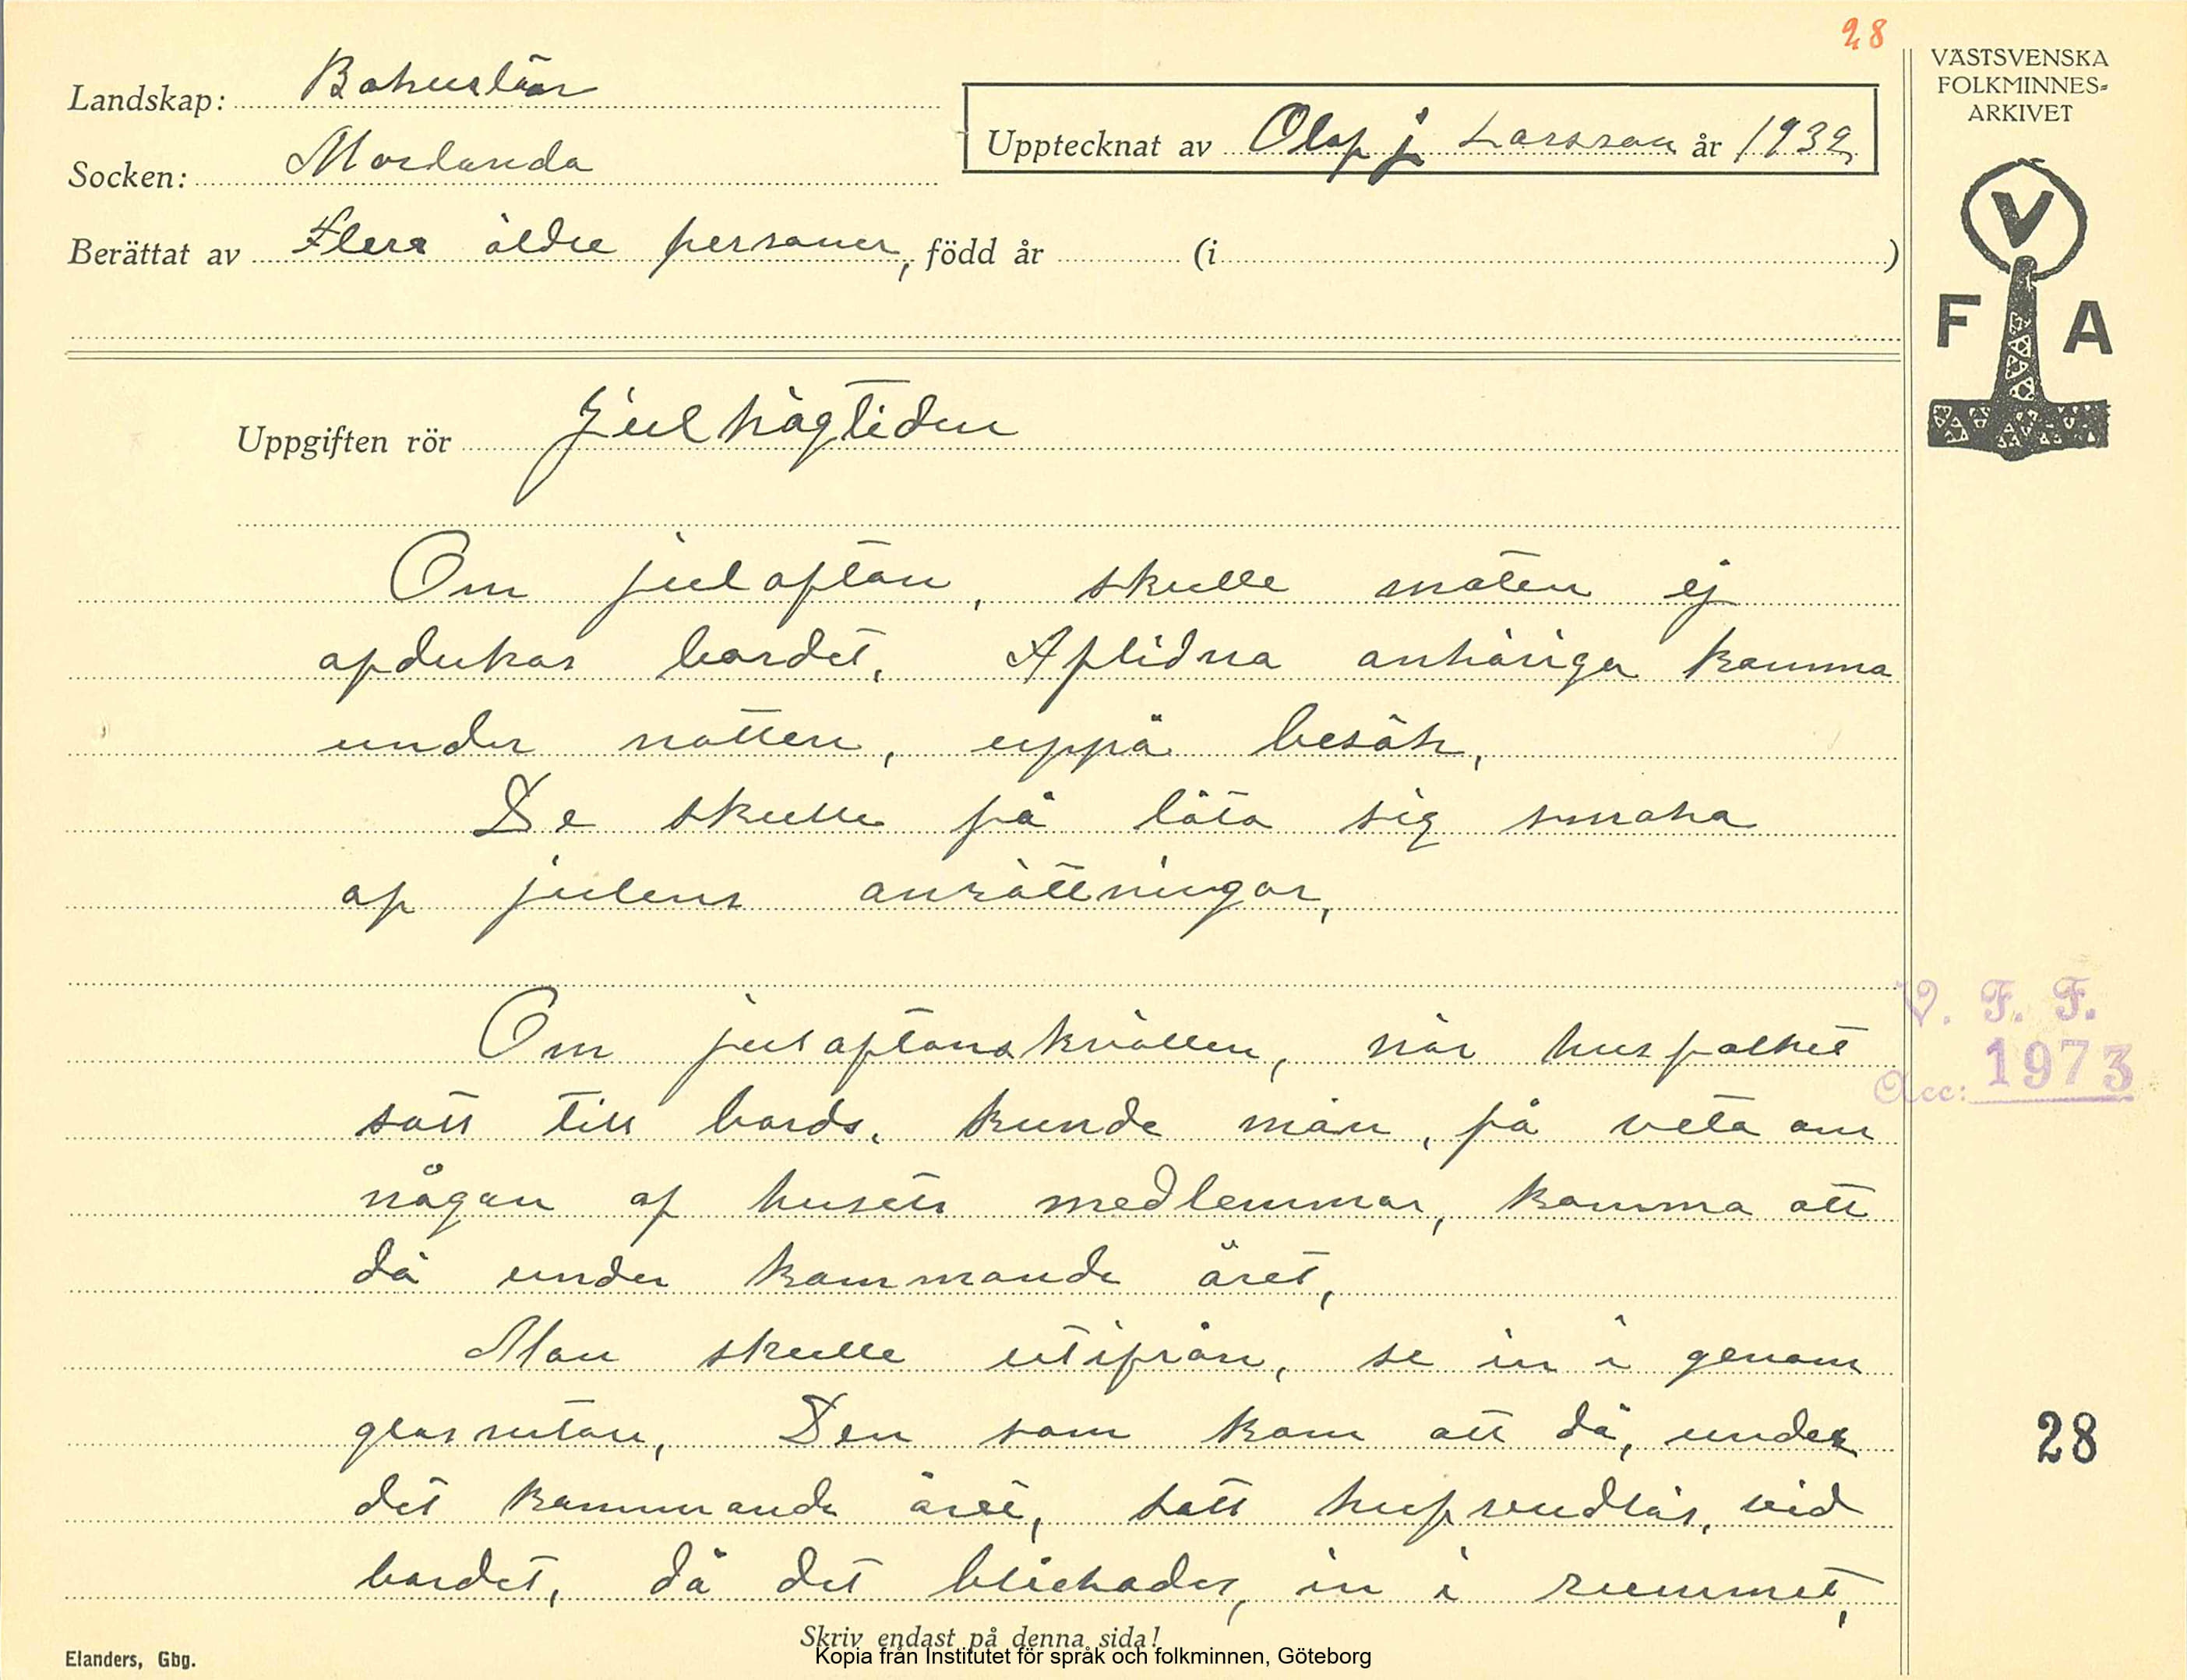 28
VÄSTSVENSKA
FOLKMINNES-
ARKIVET
Landskap: Bohuslän
Upptecknat av Olof J Larsson år 1932
Socken: Morlanda
Berättat av Flera äldre personer, född år (i )
V
F A
Uppgiften rör Julhögtiden
Om julaftan, skulle maten ej
afdukas bordet. Aflidna anhöriga komma
under natten, uppå besök,
De skulle få låta sig smaka
af julens anrättningar,
Om julaftonskvällen, när husfolket
satt till bords. kunde man, få veta om
någon af husets medlemmar, komma att
dö under kommande året,
Man skulle utifrån, se in i genom
glasrutan, Den som kom att dö, under
det kommande året, satt hufvudlös, vid
bordet, då det blickades, in i rummet,
V. F. F.
Acc: 1973
28
Skriv endast på denna sida!
Elanders, Gbg.
Kopia från Institutet för språk och folkminnen, Göteborg